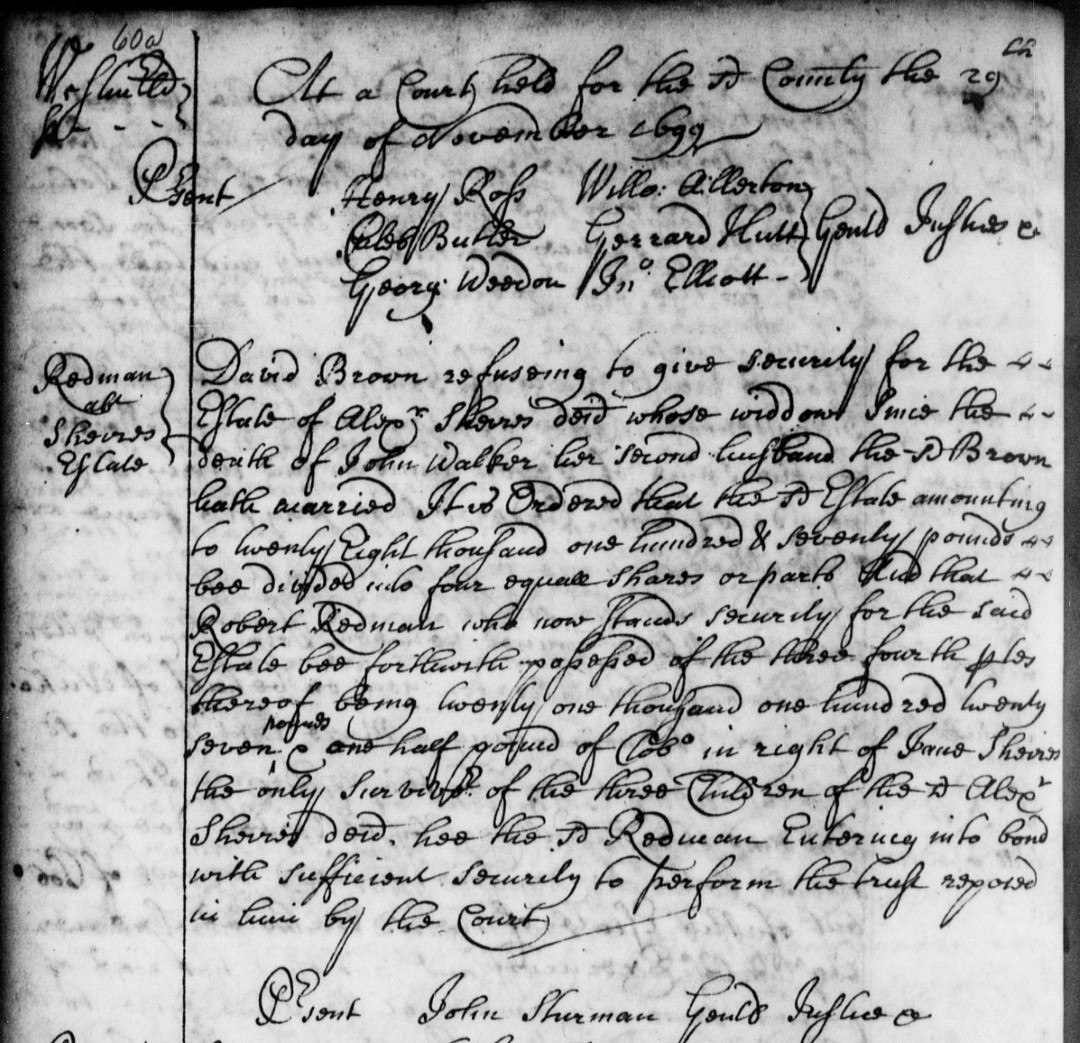 60a
Westmrld
Ss
At a Court held for the sd County the 29th
day of November 1699
Psent
Henry Ross Willo: Allerton
Caleb Butler Gerrard Hutt Gentd Justices &
Georg: Weedon Jno Elliott
Redman
abt
Shevres
Estate
David Brown refuseing to give security for the
Estate of Alexr Shevres decd whose widdow since the
death of John Walker her second husband the sd Brown
hath married It is Ordered that the sd Estate amounting
to twenty Eight thousand one hundred & seventy pounds
bee divided into four equall shares or parts And that
Robert Redman who now stands security for the said
Estate bee forthwith possessed of the three fourth ptes
thereof being twenty one thousand one hundred twenty
seven pounds & one half pound of Tobo in right of Jane Shevres
the only Survivr of the three Children of the sd Alexr
Shevres decd. hee the sd Redman Entering into bond
with sufficient security to perform the trust reposed
in him by the Court
Psent John Sturman Gentd Justice &